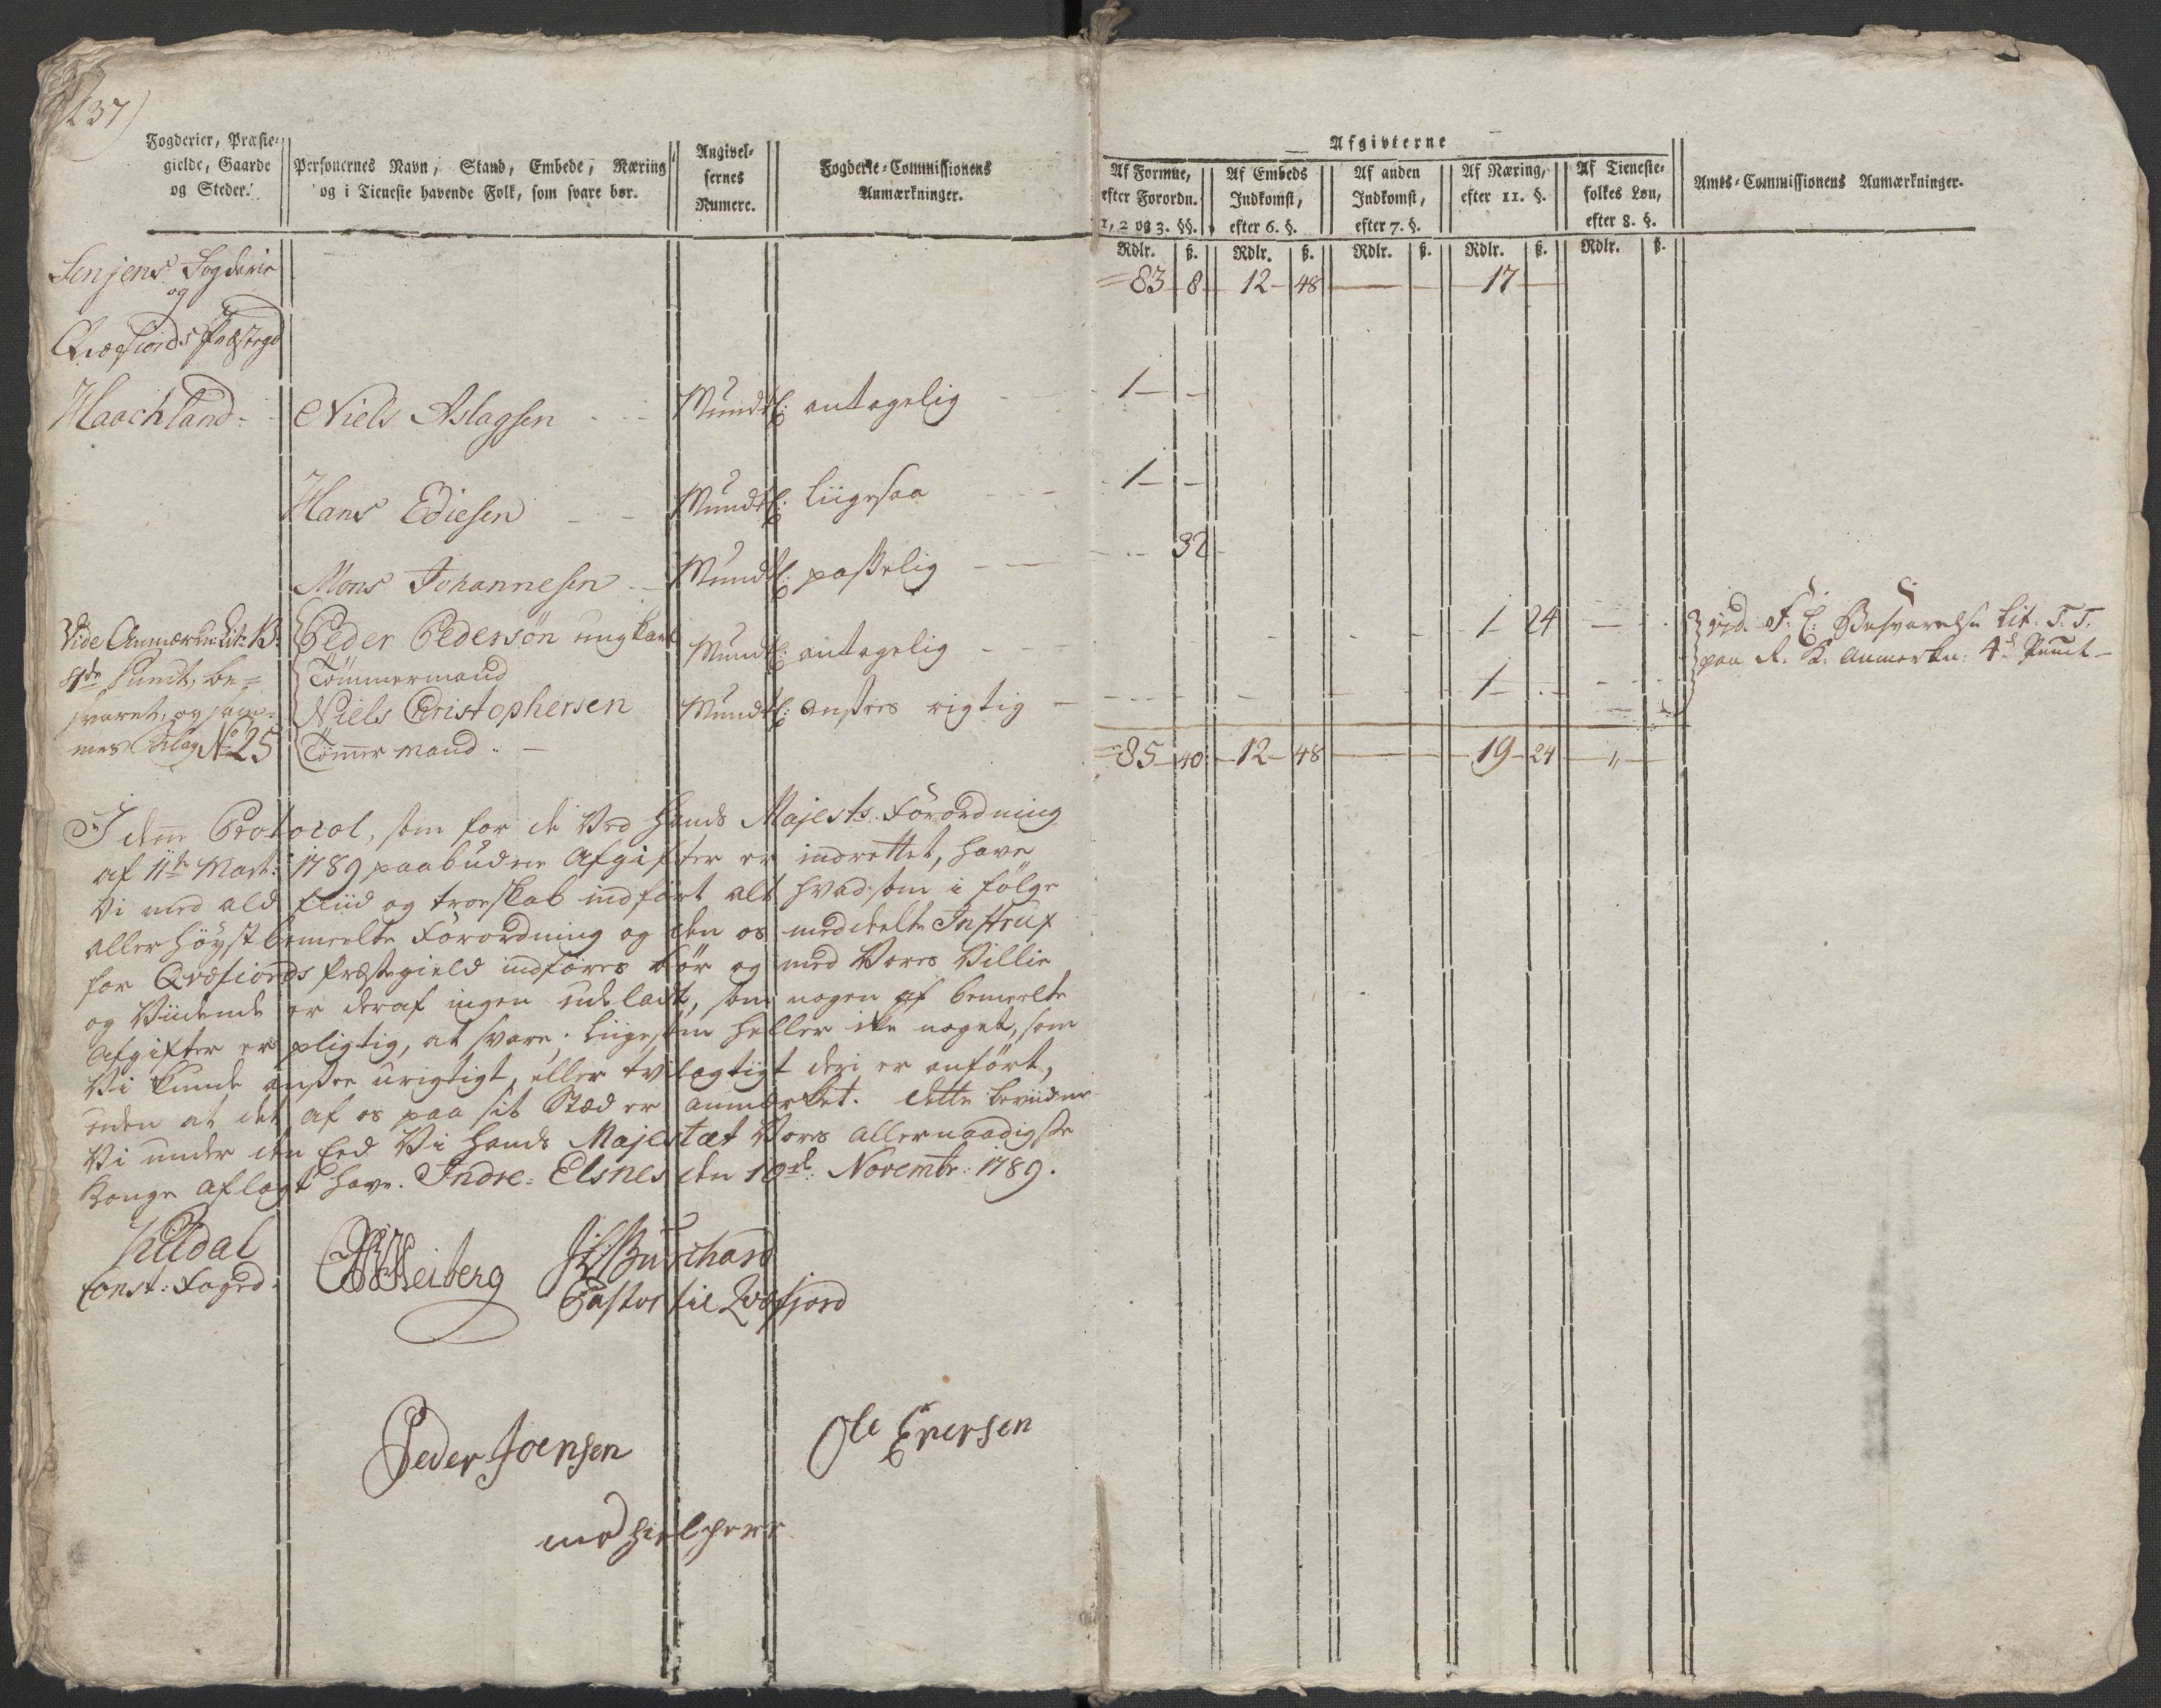 137)
Fogderier, Præste-
gielde, Gaarde
og Steder.
Personernes Navn, Stand, Embede, Næring
og i Tieneste havende Folk, som svare bør.
Angivel-
sernes
Numere.
Fogderie-Commissionens
Anmærkninger.
Afgivterne
Af Formue,
efter Forordn.
1, 2 og 3. §§.
Af Embeds
Indkomst,
efter 6. §.
Af anden
Indkomst,
efter 7. §.
Af Næring,
efter 11. §.
Af Tieneste-
folkes Løn,
efter 8. §.
Amts-Commissionens Anmærkninger.
Rdlr. ß. Rdlr. ß. Rdlr. ß. Rdlr. ß. Rdlr. ß.
Senjens Fogderie
og
Qvæfiords Præstegd
83 8 12 48 — — 17 —
Haachland Niels Aslagsen Mundtl: antagelig 1 —
Hans Ediesen Mundtl: liigesaa 1 —
Mons Johannesen Mundtl: passelig 32
Vide Anmærkn: Lit: B. Peder Pedersøn ung karl Mundtl: antagelig 1 24
4de Punct, be=
Tømmermand
svaret, og sam-
Niels Christophersen Mundtl: ansees rigtig 1
mes Bilag No 25 Tømmermand
vid. F. C: Besvarelse Lit. T. T.
paa R. K. Anmerkn: 4de Punct
85 40 12 48 — 19 24 — "
I denne Protocol, som for de Ved Hands Majests. Forordning
af 11te Mart: 1789 paabudne Afgifter er indrettet, have
Vi med ald Fliid og troeskab indført alt hvad som i følge
allerhøyst bemeelte Forordning og den os meddeelte Instrux
for Qvæfiords Præstegield indføres bør og med Vores Villie
og Vidende er deraf ingen udeladt, som nogen af bemeelte
Afgifter er pligtig, at svare; liigesom heller ike noget, som
Vi kunde ansee urigtigt, eller tvilagtigt deri er anført,
uden at det af os paa sit Stæd er anmærket. Dette beviidner
Vi under den Eed Vi Hands Majestæt Vores allernaadigste
Konge aflagt have. Indre-Elsnes den 19de Novembr: 1789.
Kildal
Const: Foged.
Heiberg
Burchard
Pastor til Qvæfjord
Peder Joensen
Ole Eversen